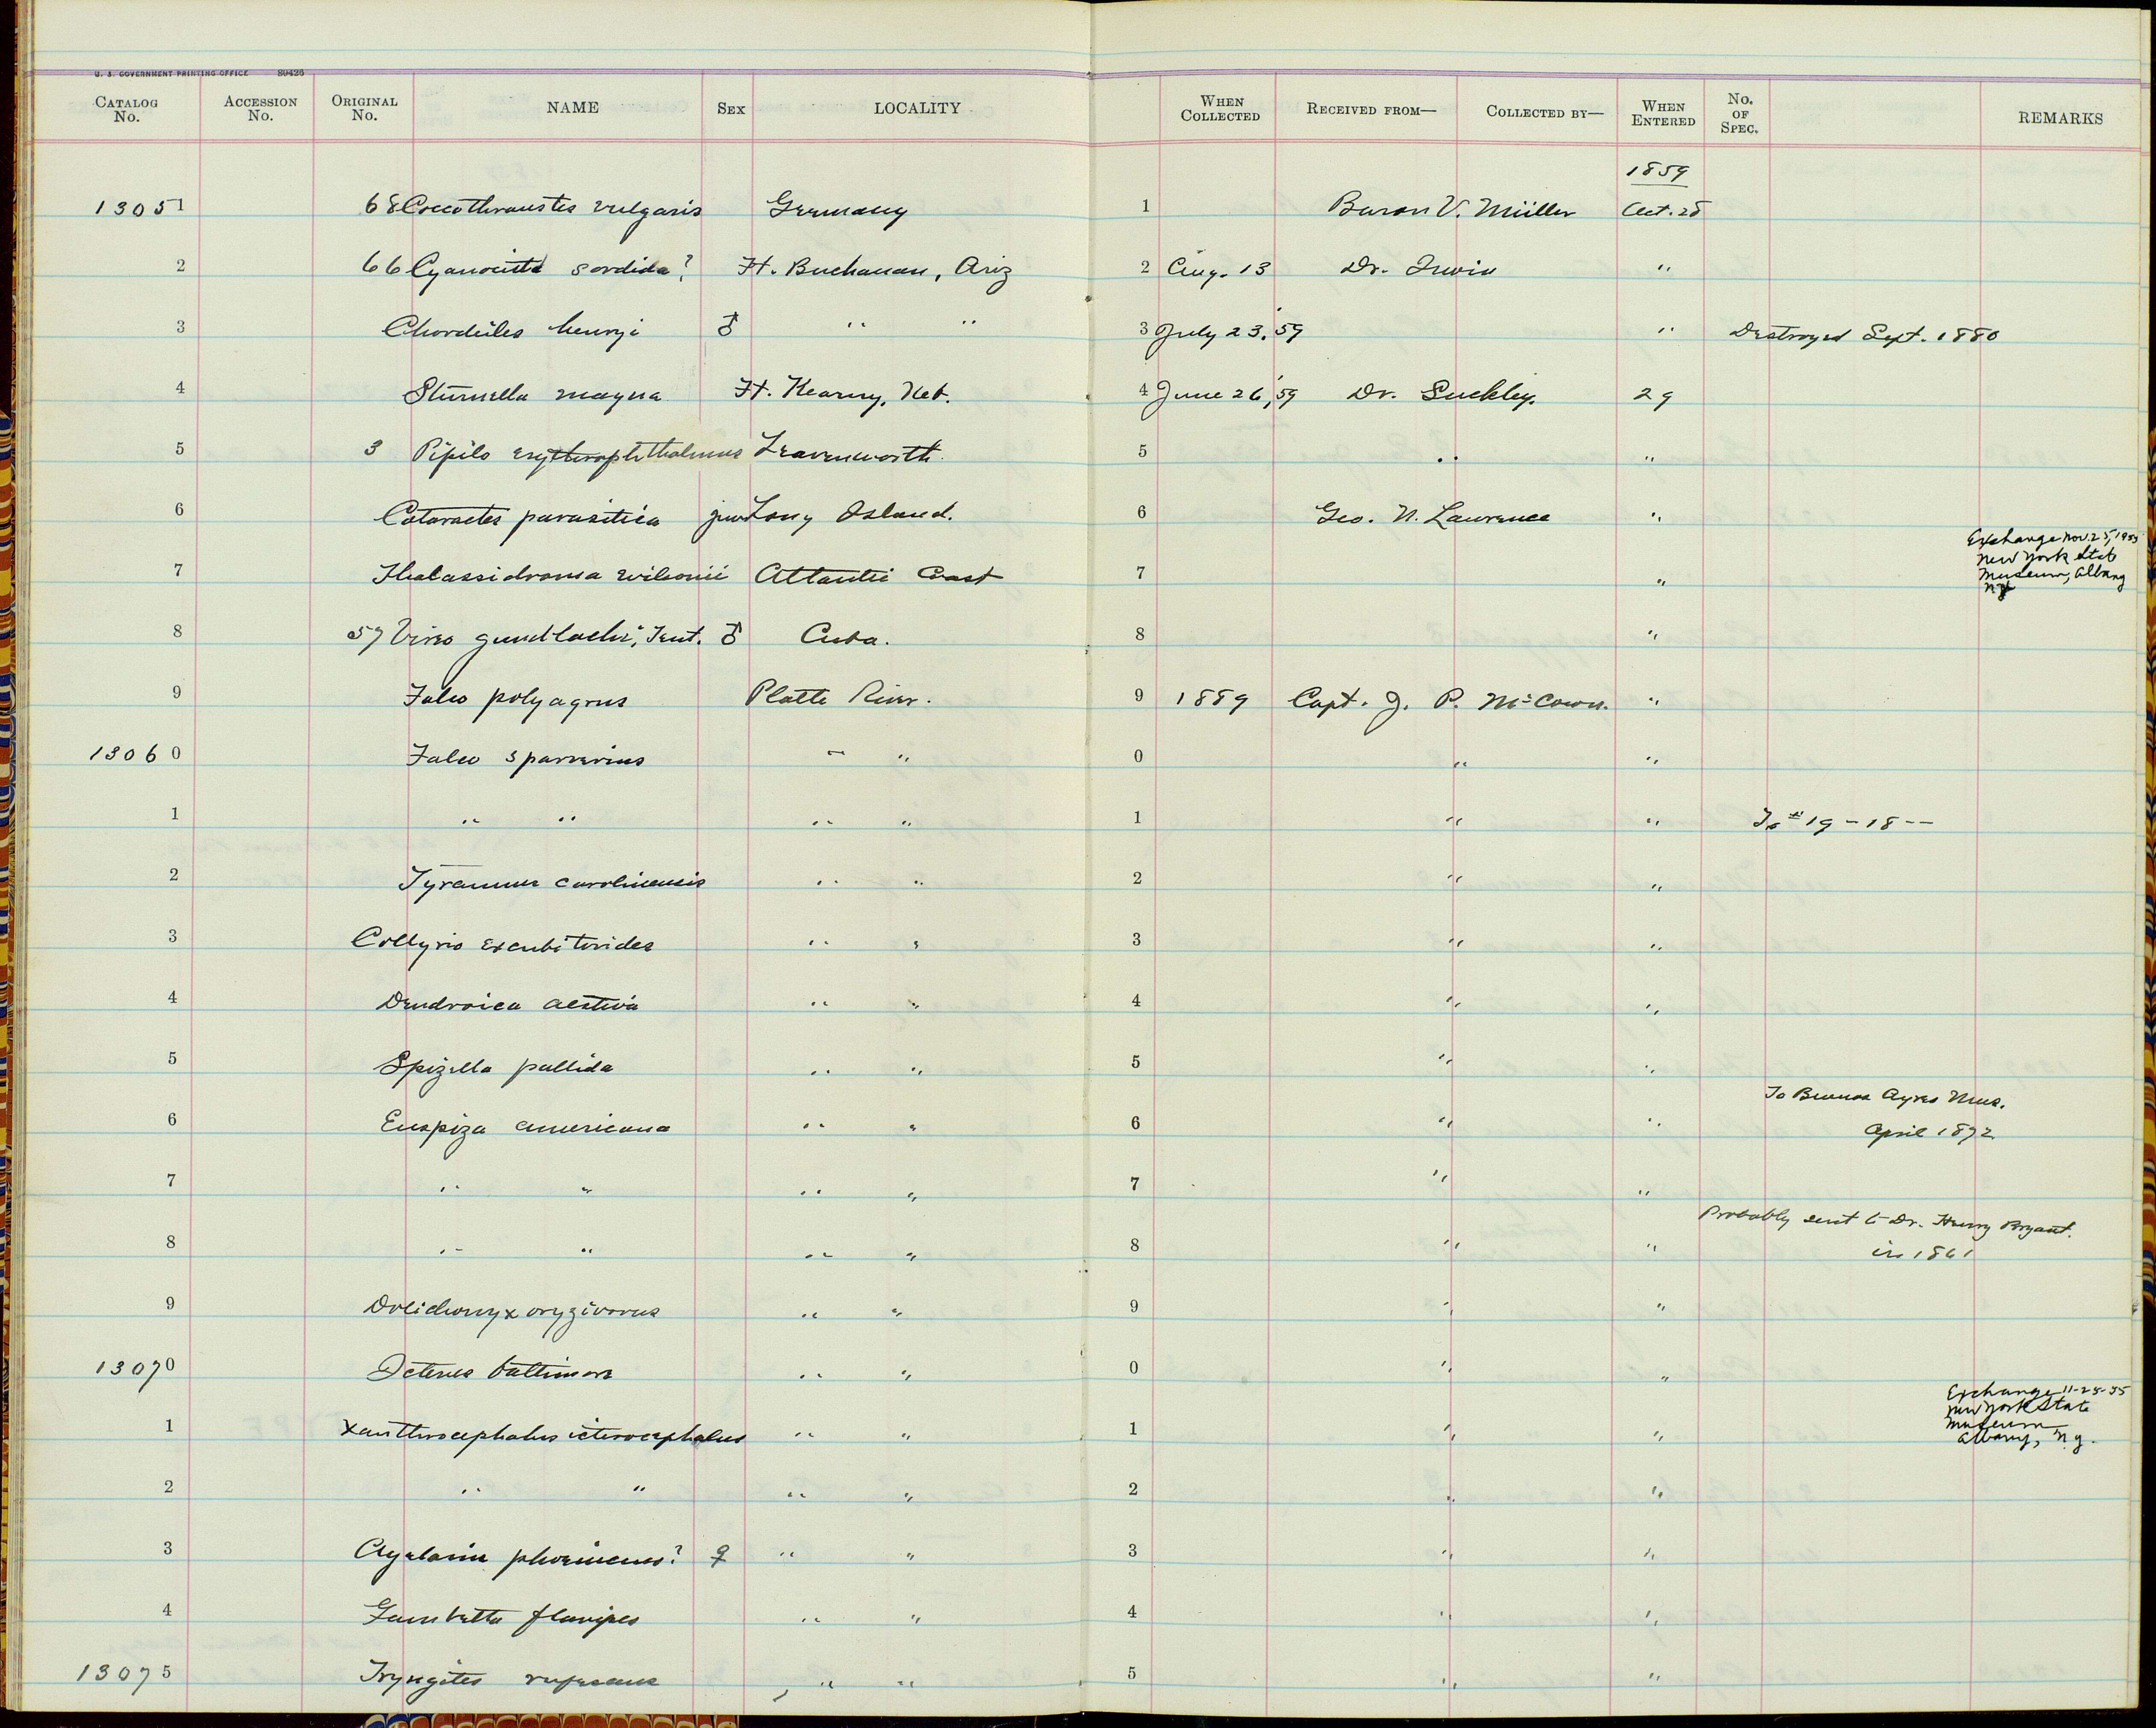 U. S. GOVERNMENT PRINTING OFFICE 80426
CATALOG No. ACCESSION No. ORIGINAL No. NAME SEX LOCALITY WHEN COLLECTED RECEIVED FROM— COLLECTED BY— WHEN ENTERED No. OF SPEC. REMARKS
1859
13051 68 Coccothraustes vulgaris Germany 1 Baron V. Müller Oct. 28
2 66 Cyanocitta sordida? Ft. Buchanan, Ariz 2 Aug. 13 Dr. Irwin "
3 Chordeiles henryi ♂ " " 3 July 23, '59 " Destroyed Sept. 1880
4 Sturnella magna Ft. Kearny, Neb. 4 June 26, '59 Dr. Suckley. 29
5 3 Pipilo erythrophthalmus Leavenworth. 5 " "
6 Cataractes parasitica juv Long Island. 6 Geo. N. Lawrence "
7 Thalassidroma wilsonii Atlantic Coast 7 " Exchange Nov. 25, 1955
New York State
Museum, Albany
N.Y.
8 57 Vireo gundlachi, Tent. ♂ Cuba. 8 "
9 Falco polyagrus Platte River. 9 1889 Capt. J. P. McCown. "
13060 Falco sparverius " " 0 " "
1 " " " " 1 " " 19-18--
2 Tyrannus carolinensis " " 2 " "
3 Collyrio excubitorides " " 3 " "
4 Dendroica aestiva " " 4 " "
5 Spizella pallida " " 5 " "
6 Euspiza americana " " 6 " " To Buenos Ayres Mus.
April 1872
7 " " " " 7 " "
8 " " " " 8 " " Probably sent to Dr. Henry Bryant.
in 1861
9 Dolichonyx oryzivorus " " 9 " "
13070 Icterus baltimore " " 0 " "
1 Xanthocephalus icterocephalus " " 1 " " Exchange 11-25-55
New York State
Museum
Albany, N.Y.
2 " " " " 2 " "
3 Agelaius phoeniceus? ♀ " " 3 " "
4 Gambetta flavipes " " 4 " "
13075 Tryngites rufescens " " 5 " "